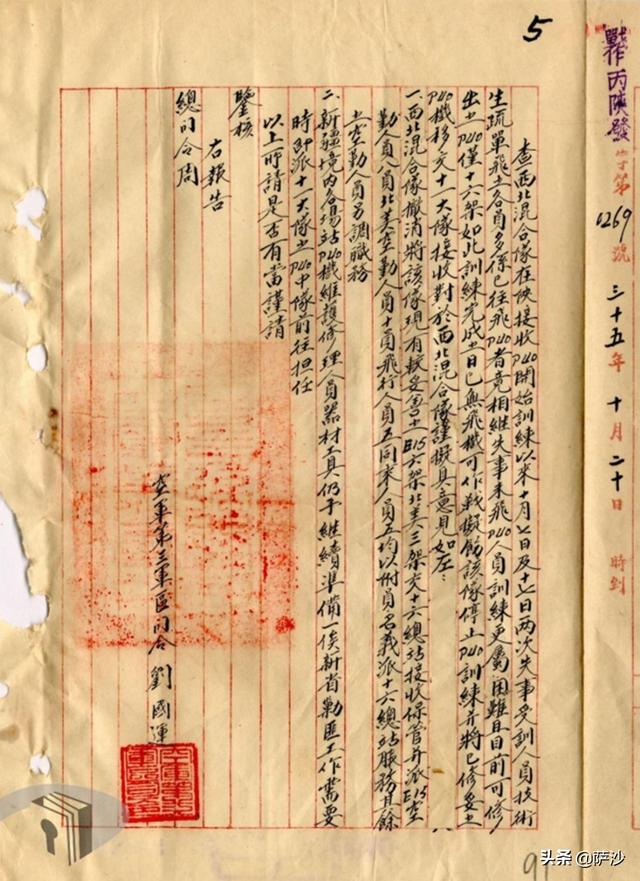 5
戰作丙陝發字第0269號 三十五年十月二十日 時到
查西北混合隊在陝接收P40開始訓練以來十月七日及十七日兩次失事受訓人員技術
生疏單飛之各員多係已往飛P40者竟相繼失事未飛P40人員訓練更屬困難且目前可修
出之P40僅十六架如此訓練完成之日已無飛機可作戰擬飭該隊停止P40訓練并將已修妥之
P40機移交十一大隊接收對於西北混合隊謹擬具意見如左：
一、西北混合隊撤消將該隊現有較妥善之E15六架北美三架交十六總站接收保管并派E15空
勤人員八員北美空勤人員十員飛行人員五同來人員五均以附員名義派十六總站服務其餘
之空勤人員另調職務
二、新疆境內各場站P40機維護修理人員器材工具仍予繼續準備一俟新省勦匪工作需要
時即派十一大隊之P40中隊前往担任
以上所請是否有當謹請
鑒核
右報告
總司令周
空軍第三軍區司令劉國運
91
头条 @萨沙